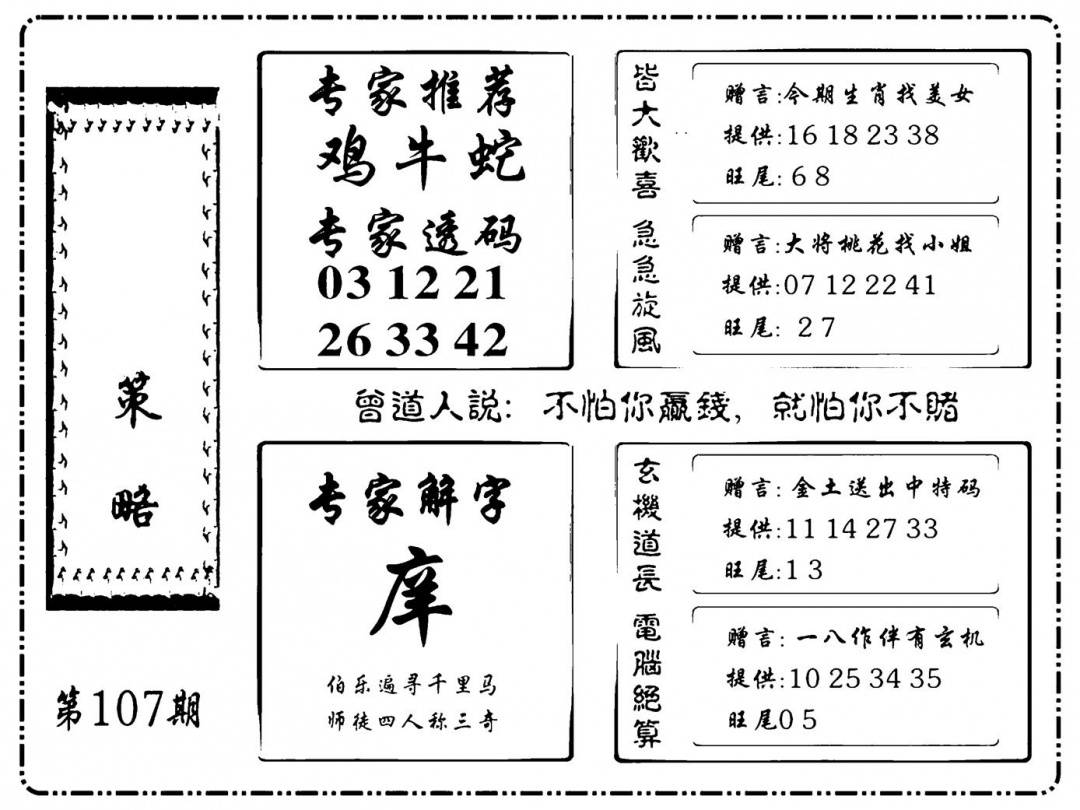 策略
第107期
专家推荐
鸡牛蛇
专家透码
03 12 21
26 33 42
皆大歡喜
赠言:今期生肖找美女
提供:16 18 23 38
旺尾:6 8
急急旋風
赠言:大将桃花找小姐
提供:07 12 22 41
旺尾: 2 7
曾道人説: 不怕你贏錢, 就怕你不賭
专家解字
庠
伯乐遍寻千里马
师徒四人称三奇
玄機道長
赠言: 金土送出中特码
提供:11 14 27 33
旺尾:1 3
電腦絕算
赠言: 一八作伴有玄机
提供:10 25 34 35
旺尾0 5